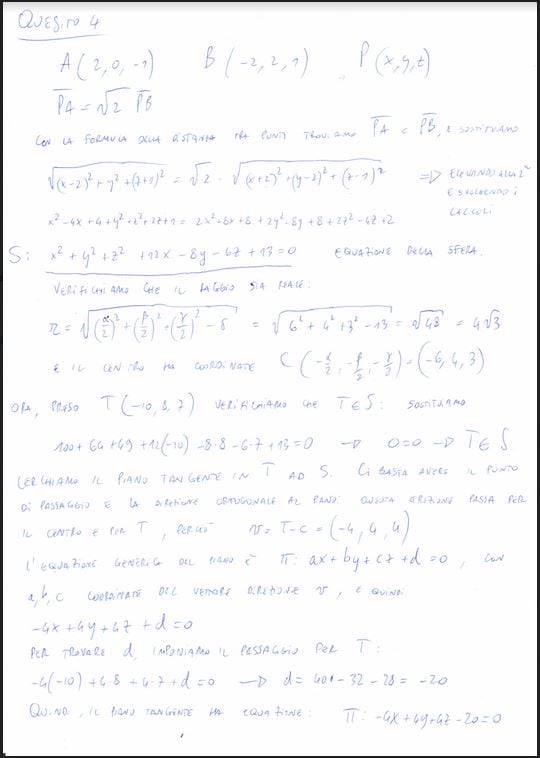 QUESITO 4
A(2,0,-1) B(-2,2,1) P(x,y,z)
PA = √2 PB
CON LA FORMULA DELLA DISTANZA TRA PUNTI TROVIAMO PA E PB, E SOSTITUIAMO
√((x-2)²+y²+(z+1)²) = √2 · √((x+2)²+(y-2)²+(z-1)²) => ELEVANDO ALLA 2
E SVOLGENDO I
CALCOLI
x²-4x+4+y²+z²+2z+1 = 2x²+8x+8+2y²-8y+8+2z²-4z+2
S: x²+y²+z²+12x-8y-6z+13=0 EQUAZIONE DELLA SFERA.
VERIFICHIAMO CHE IL RAGGIO SIA REALE:
r = √((α/2)²+(β/2)²+(γ/2)²-δ) = √(6²+4²+3²-13) = √48 = 4√3
E IL CENTRO HA COORDINATE C(-α/2, -β/2, -γ/2) = (-6,4,3)
ORA, PRESO T(-10,8,7) VERIFICHIAMO CHE T∈S: SOSTITUIAMO
100+64+49+12(-10)-8·8-6·7+13=0 → 0=0 → T∈S
CERCHIAMO IL PIANO TANGENTE IN T AD S. CI BASTA AVERE IL PUNTO
DI PASSAGGIO E LA DIREZIONE ORTOGONALE AL PIANO. QUESTA DIREZIONE PASSA PER
IL CENTRO E PER T, PERCIÒ v = T-C = (-4,4,4)
L'EQUAZIONE GENERICA DEL PIANO È π: ax+by+cz+d=0, CON
a,b,c COORDINATE DEL VETTORE DIREZIONE v, E QUINDI
-4x+4y+4z+d=0
PER TROVARE d, IMPONIAMO IL PASSAGGIO PER T:
-4(-10)+4·8+4·7+d=0 → d= -32-28= -20
QUINDI, IL PIANO TANGENTE HA EQUAZIONE: π: -4x+4y+4z-20=0